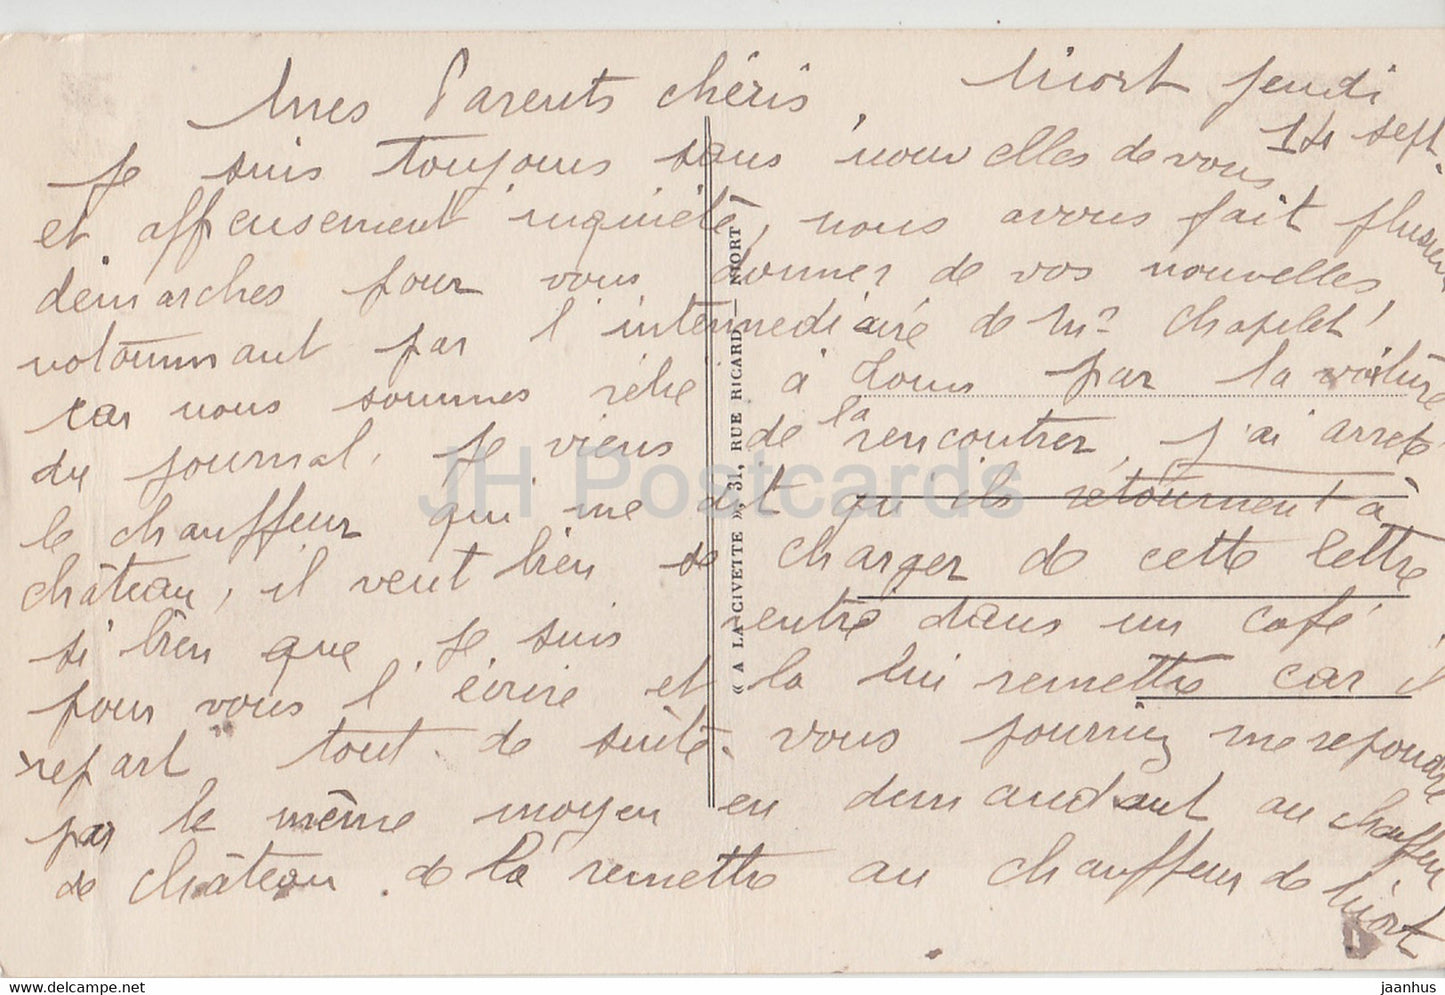 Niort jeudi
14 sept.
Mes Parents chéris,
Je suis toujours sans nouvelles de vous
et affreusement inquiète, nous avons fait plusieurs
démarches pour vous donner de vos nouvelles
notamment par l'intermédiaire de Mr Chapelet
car nous sommes relié à Tours par la voiture
du journal. Je viens de la rencontrer, j'ai arrêté
le chauffeur qui me dit qu'ils retournent à
château, il veut bien se charger de cette lettre
si bien que je suis entré dans un café
pour vous l'écrire et la lui remettre car il
repart tout de suite. vous pourriez me repondre
par le même moyen en demandant au chauffeur
de château de la remettre au chauffeur de Niort
« A LA CIVETTE », 31, RUE RICARD, — NIORT
JH Postcards
jaanhus